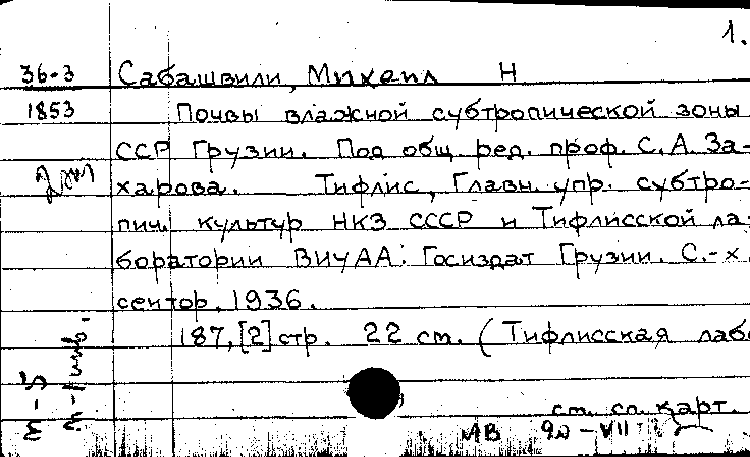 1.
36-3 Сабашвили, Михаил Н
1853 Почвы влажной субтропической зоны
ССР Грузии. Под общ. ред. проф. С. А. За-
харова. Тифлис, Главн. упр. субтро-
пич. культур НКЗ СССР и Тифлисской ла-
боратории ВИУАА: Госиздат Грузии. С.-х.
сектор, 1936.
187, [2] стр. 22 см. (Тифлисская лабо
см. сл. карт.